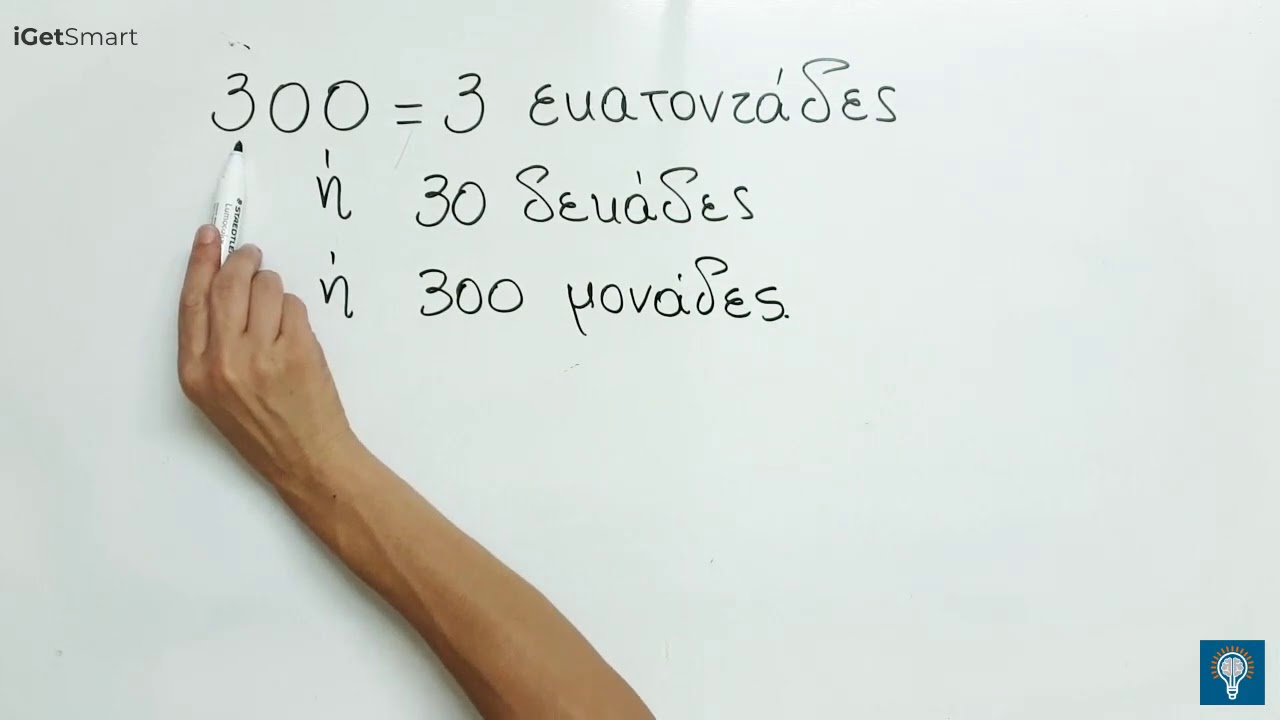 iGetSmart
300 = 3 εκατοντάδες
ή 30 δεκάδες
ή 300 μονάδες.
STAEDTLER